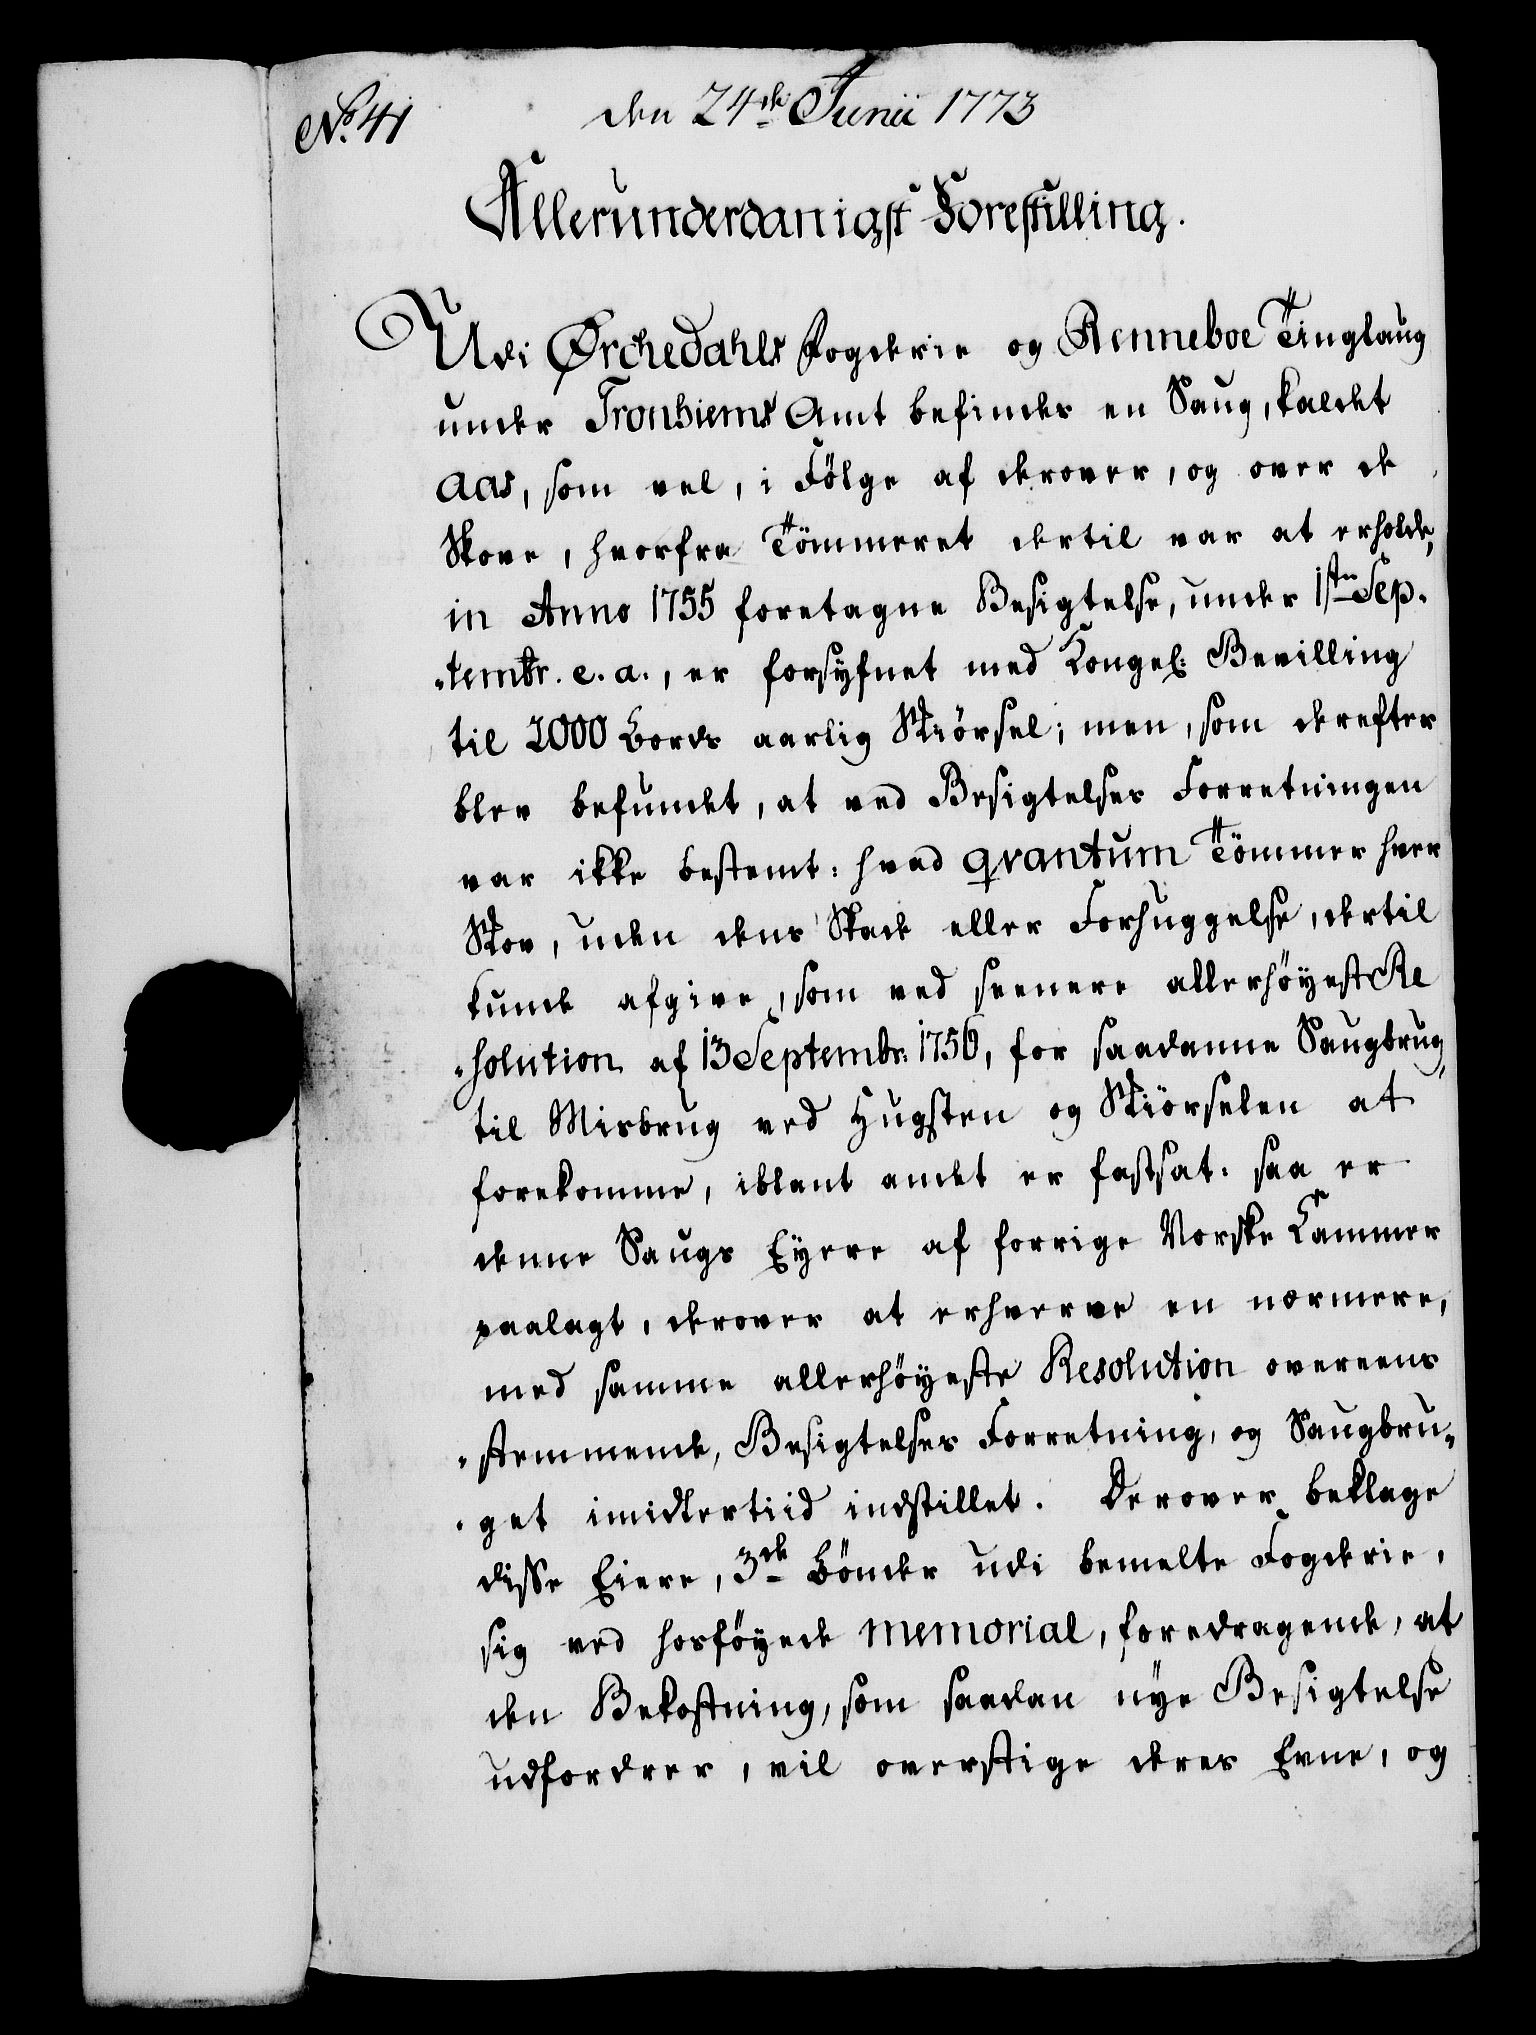 No. 41
den 24de Junii 1773
Allerunderdanigst Forestilling.
Udi Ørchedahls Fogderie og Renneboe Tinglaug
under Tronhiems Amt befindes en Saug, kaldet
Aas, som vel, i Følge af derover, og over de
Skove, hvorfra Tömmeret dertil var at erholde,
in Anno 1755 foretagne Besigtelse, under 1ste Sep-
„tembr. e. a., er forsyfnet med Kongel: Bevilling
til 2000 Bords aarlig Skiörsel; men, som derefter
blev befundet, at ved Besigtelses Forretningen
var ikke bestemt: hvad qvantum Tömmer hver
Skov, uden dens Skade eller Forhuggelse, dertil
kunde afgive, som ved seenere allerhöyest Re
„solution af 13 Septembr: 1756, for saadanne Saugbrug,
til Misbrug ved Hugsten og Skiörselen at
forekomme, iblant andet er fastsat: saa er
denne Saugs Eyere af forrige Norske Kammer
paalagt, derover at erhverve en nærmere,
med samme allerhöyeste Resolution overeens
„stemmende, Besigtelses Forretning, og Saugbru„
„get imidlertiid indstillet. Derover beklage
disse Eiere, 3de Bönder udi bemelte Fogderie,
sig ved hosföyede memorial, foredragende, at
den Bekostning, som saadan nye Besigtelse
udfordrer, vil overstige deres Evne, og